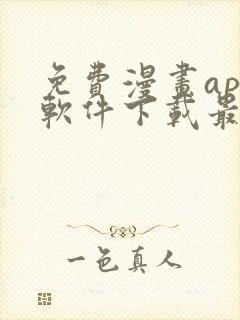 免費漫畫ap
軟件下載最
一色真人